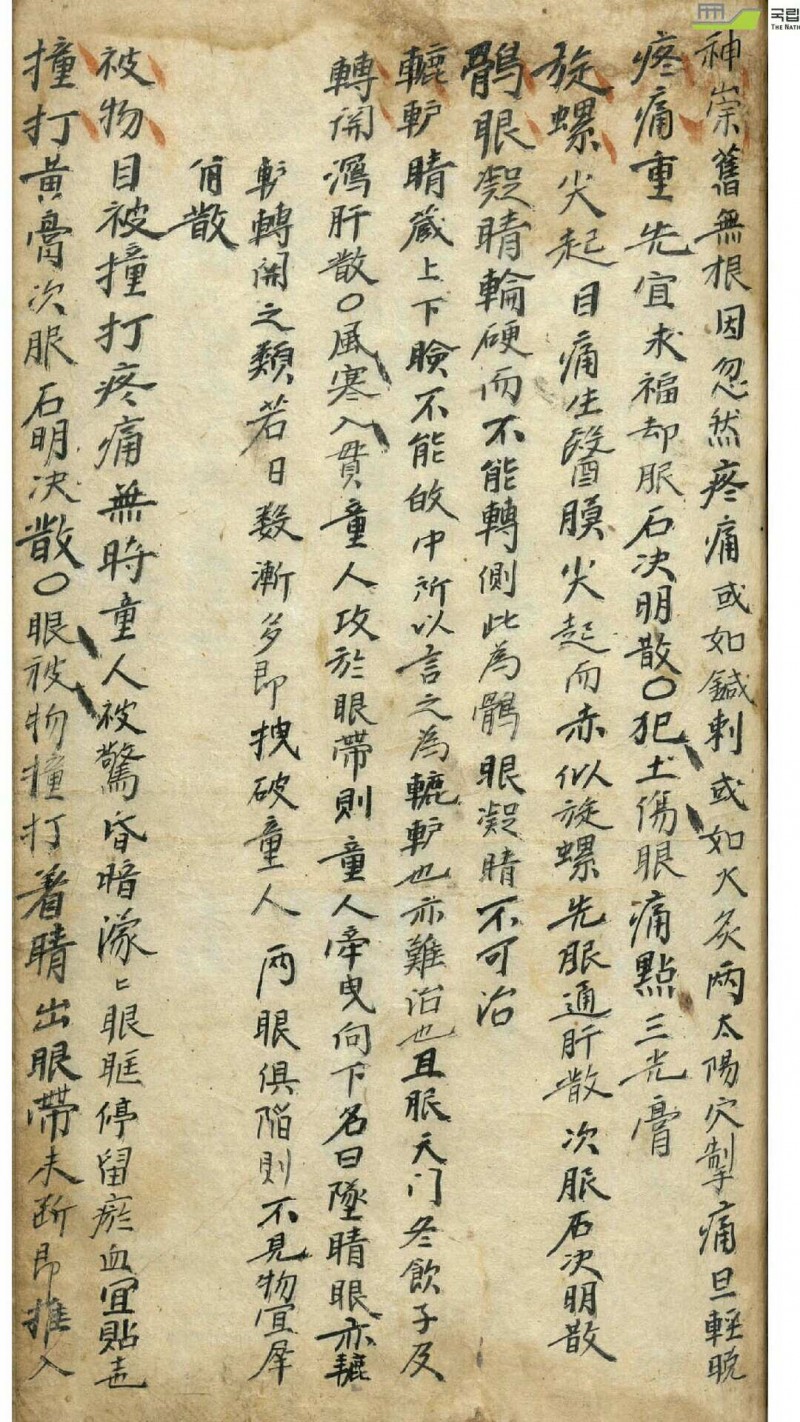 神祟舊無根因忽然疼痛或如鍼刺或如火灸兩太陽穴掣痛旦輕晩
疼痛重先宜求福却服石决明散〇犯土傷眼痛點三光膏
旋螺尖起目痛生瞖膜尖起而赤似旋螺先服通肝散次服石决明散
鶻眼凝睛輪硬而不能轉側此為鶻眼凝睛不可治
轆轳睛藏上下瞼不能啟中所以言之為轆轳也亦難治也且服天门冬飲子及
轉関瀉肝散〇風寒入貫童人攻於眼帶則童人牽曳向下名曰墜睛眼亦轆
轳轉関之類若日数漸多即拽破童人兩眼俱陷則不見物宜犀
角散
被物目被撞打疼痛無時童人被驚昏暗濛〻眼眶停留瘀血宜貼
撞打黃膏次服石明决散〇眼被物撞打着睛出眼帶未断即推入
국립
THE NATI